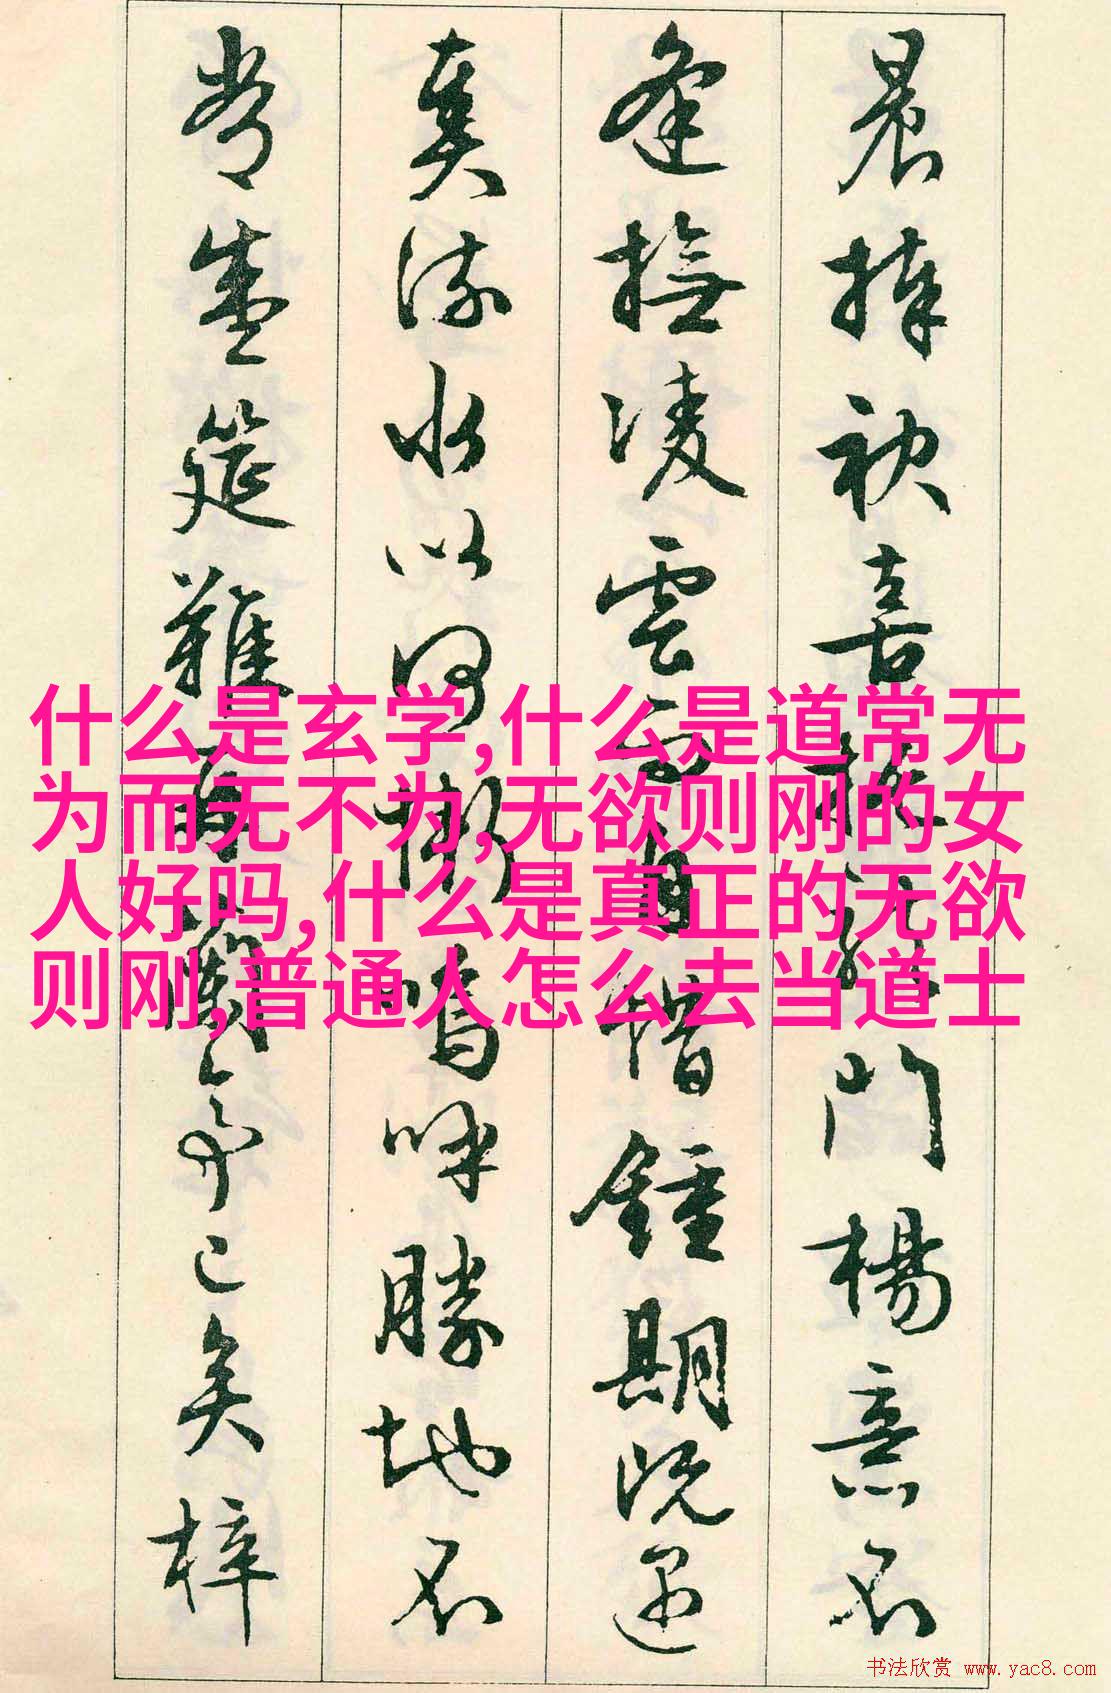 晨捧袂喜托龍門楊意不
逢撫凌雲而自惜鍾期既遇
奏流水以何慚嗚呼勝地不
常盛筵難再蘭亭已矣梓
什么是玄学,什么是道常无
为而无不为,无欲则刚的女
人好吗,什么是真正的无欲
则刚,普通人怎么去当道士
书法欣赏 www.yac8.com